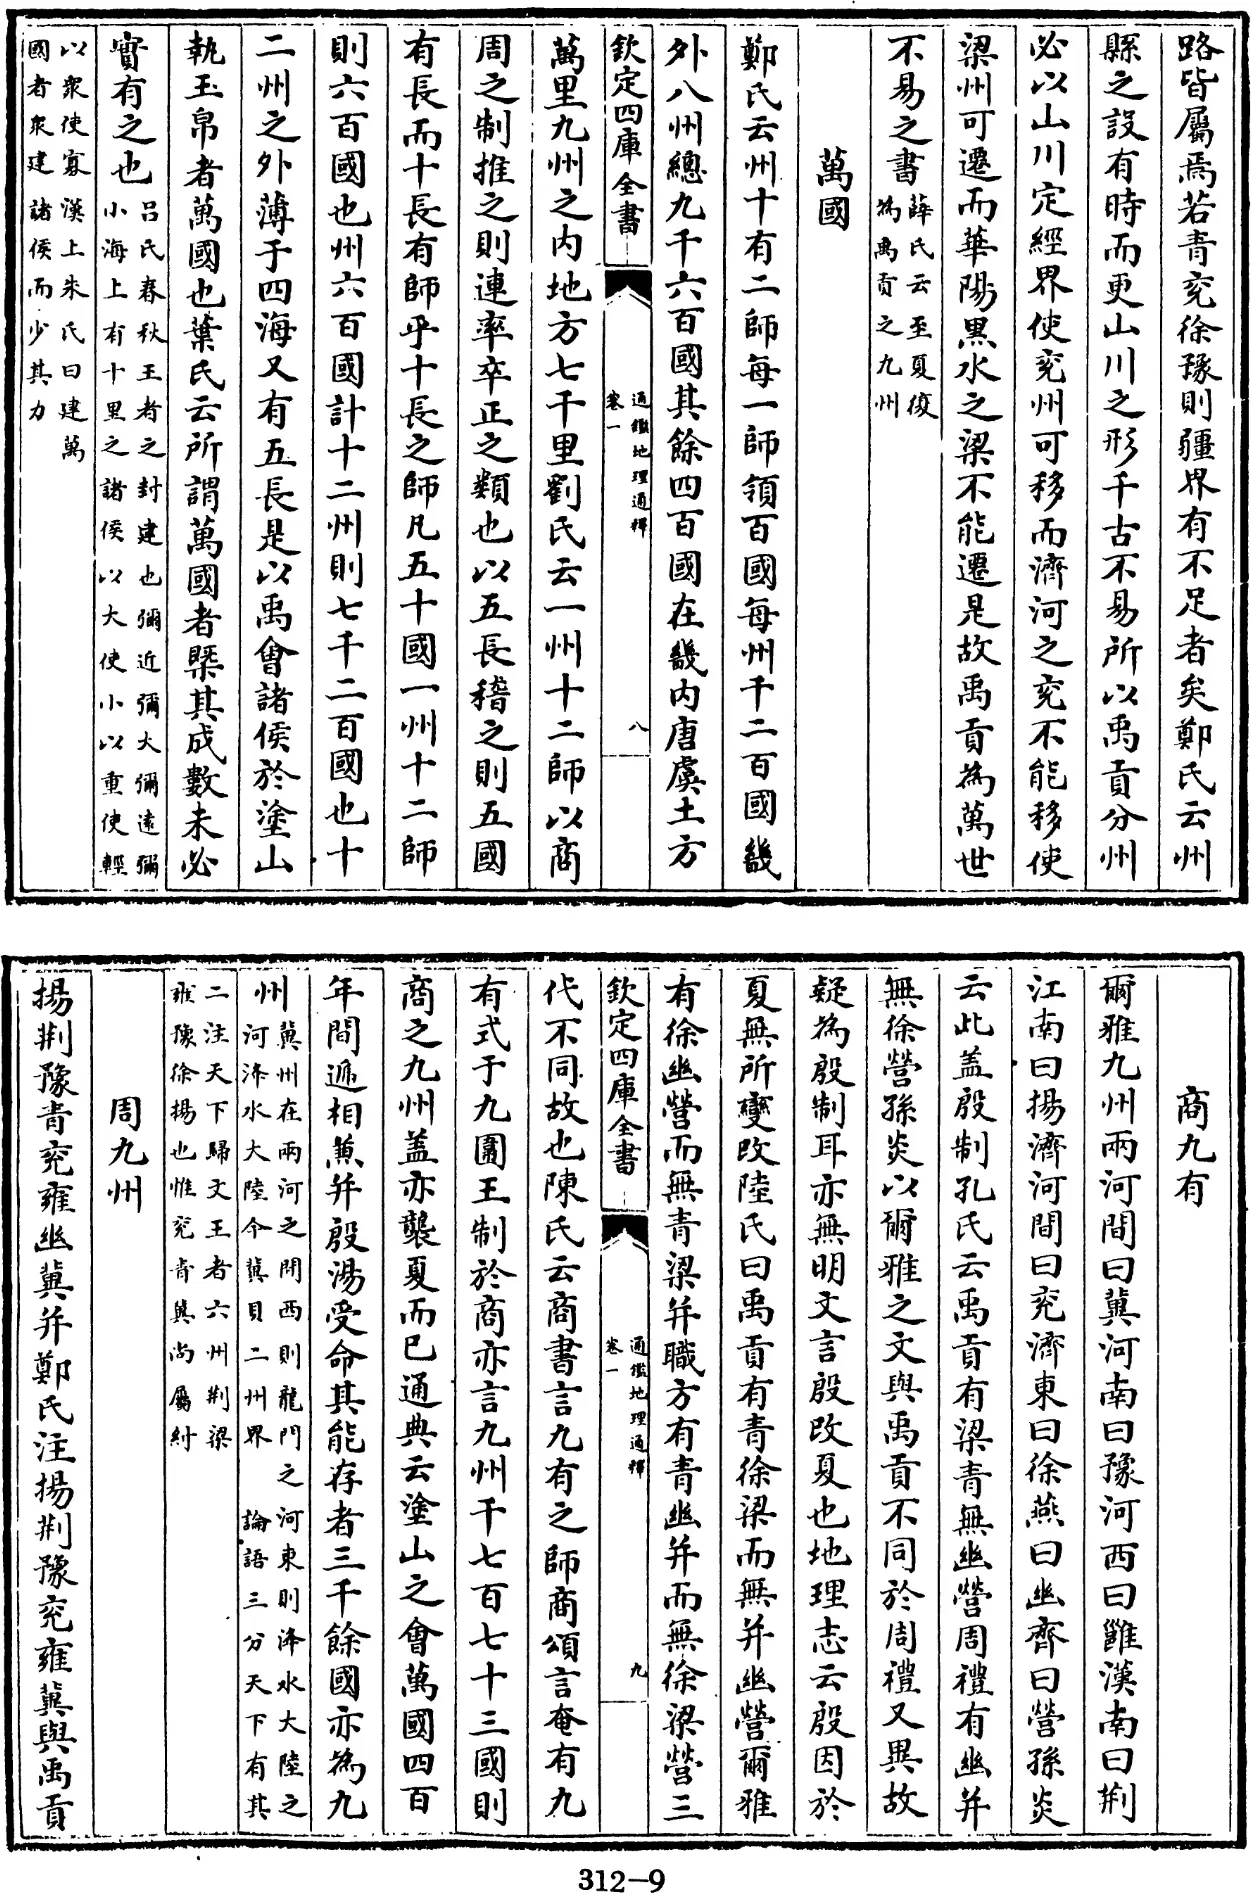 路皆屬焉若青兖徐豫則疆界有不足者矣鄭氏云州
縣之設有時而更山川之形千古不易所以禹貢分州
必以山川定經界使兖州可移而濟河之兖不能移使
梁州可遷而華陽黑水之梁不能遷是故禹貢為萬世
不易之書薛氏云至夏復
為禹貢之九州
萬國
鄭氏云州十有二師每一師領百國每州千二百國畿
外八州總九千六百國其餘四百國在畿内唐虞土方
欽定四庫全書
通鑑地理通釋
卷一
八
萬里九州之内地方七千里劉氏云一州十二師以商
周之制推之則連率卒正之類也以五長稽之則五國
有長而十長有師乎十長之師凡五十國一州十二師
則六百國也州六百國計十二州則七千二百國也十
二州之外薄于四海又有五長是以禹會諸侯於塗山
執玉帛者萬國也葉氏云所謂萬國者槩其成數未必
實有之也呂氏春秋王者之封建也彌近彌大彌遠彌
小海上有十里之諸侯以大使小以重使輕
以衆使寡漢上朱氏曰建萬
國者衆建諸侯而少其力
商九有
爾雅九州兩河間曰冀河南曰豫河西曰雝漢南曰荆
江南曰揚濟河間曰兖濟東曰徐燕曰幽齊曰營孫炎
云此盖殷制孔氏云禹貢有梁青無幽營周禮有幽并
無徐營孫炎以爾雅之文與禹貢不同於周禮又異故
疑為殷制耳亦無明文言殷改夏也地理志云殷因於
夏無所變改陸氏曰禹貢有青徐梁而無并幽營爾雅
有徐幽營而無青梁并職方有青幽并而無徐梁營三
欽定四庫全書
通鑑地理通釋
卷一
九
代不同故也陳氏云商書言九有之師商頌言奄有九
有式于九圍王制於商亦言九州千七百七十三國則
商之九州盖亦襲夏而已通典云塗山之會萬國四百
年間遞相兼并殷湯受命其能存者三千餘國亦為九
州冀州在兩河之間西則龍門之河東則洚水大陸之
河洚水大陸今冀貝二州界論語三分天下有其
二注天下歸文王者六州荆梁
雍豫徐揚也惟兖青冀尚屬紂
周九州
揚荆豫青兖雍幽冀并鄭氏注揚荆豫兖雍冀與禹貢
312-9